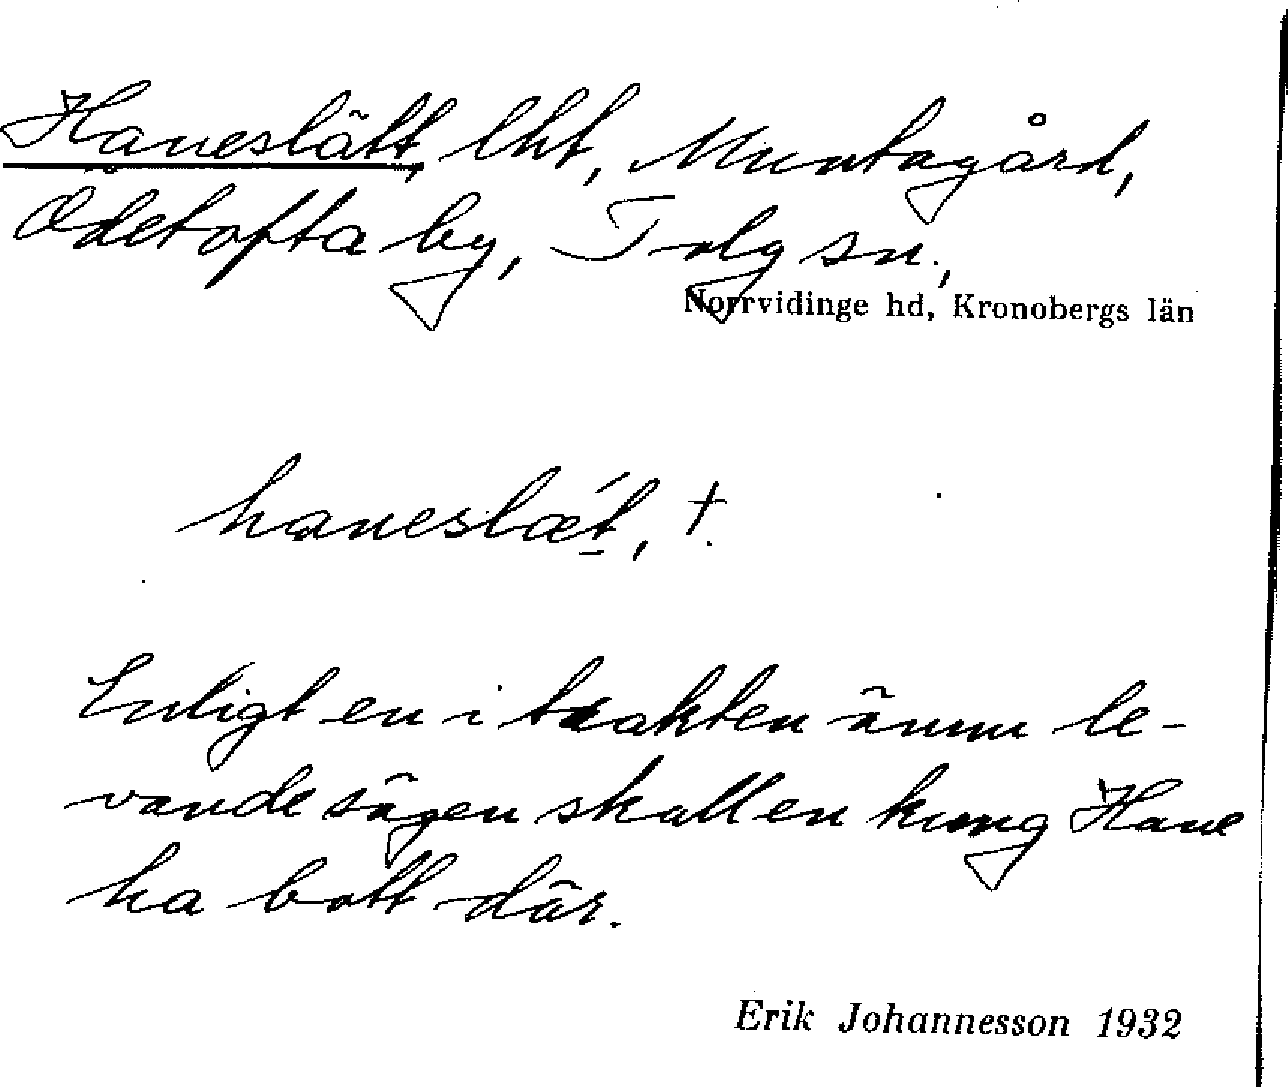 Haneslätt, lht, Muntagård,
Ödetofta by, Tolg sn.,
Norrvidinge hd, Kronobergs län
haneslǽt, †.
Enligt en i trakten ännu le-
vande sägen skall en kung Hane
ha bott där.
Erik Johannesson 1932